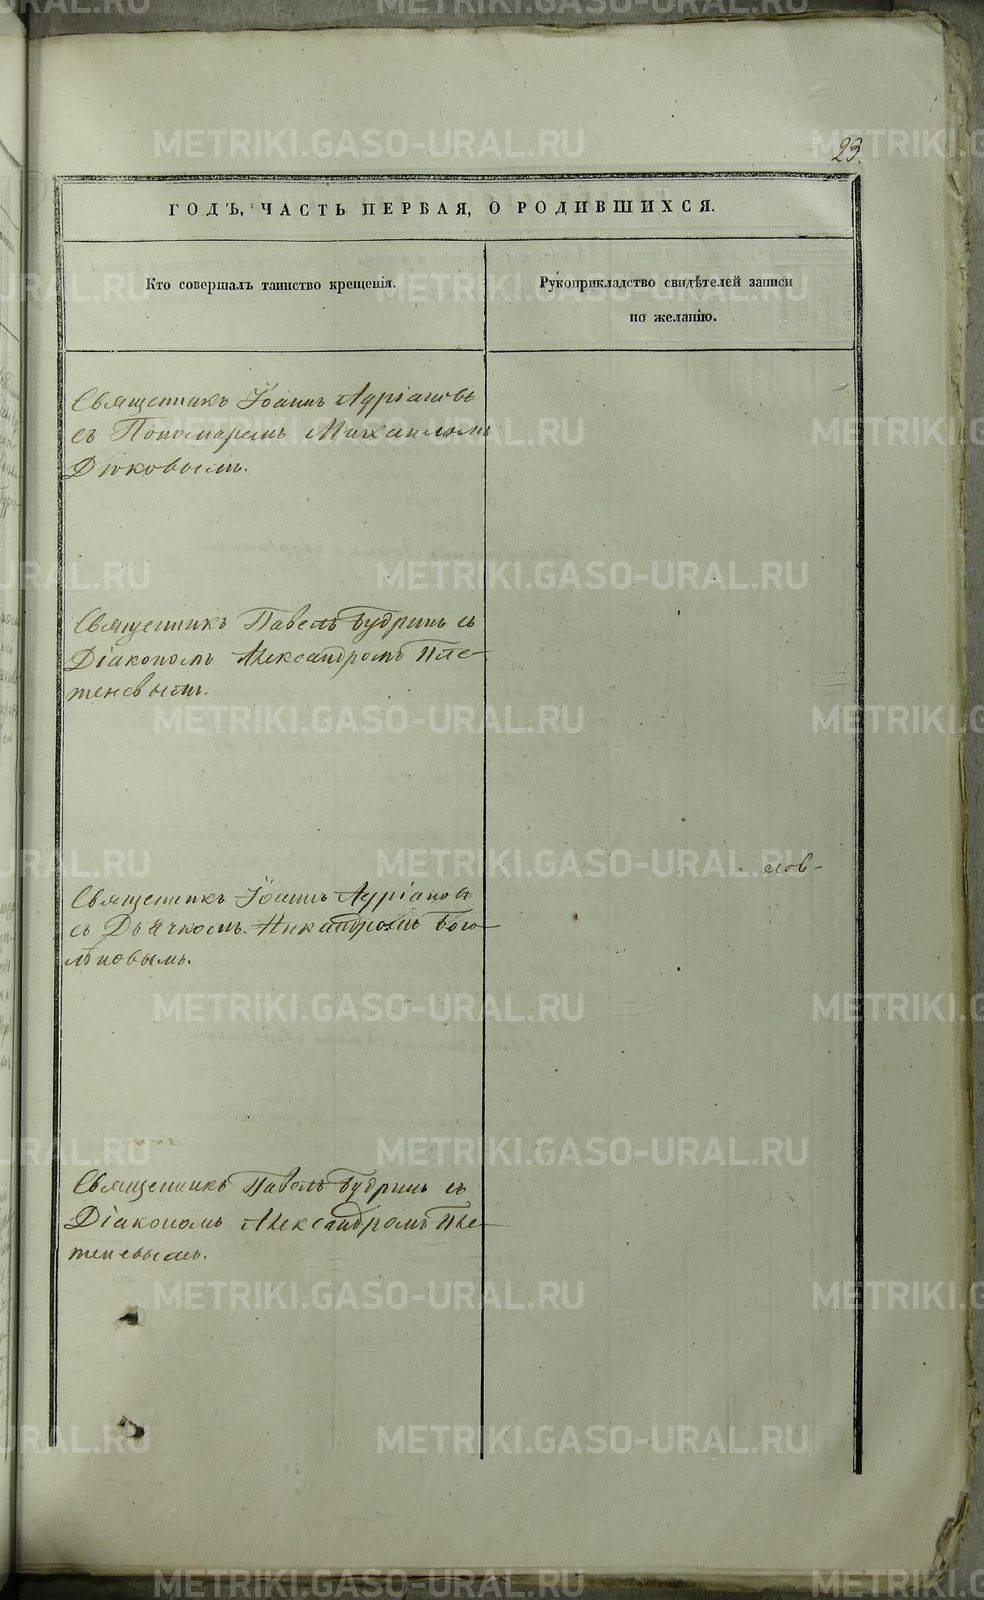 23.
ГОДЪ, ЧАСТЬ ПЕРВАЯ, О РОДИВШИХСЯ.
Кто совершалъ таинство крещенія.
Рукоприкладство свидѣтелей записи
по желанію.
Священникъ Іоаннъ Адріановъ
съ Пономаремъ Михаиломъ
Дюковымъ.
Священникъ Павелъ Будринъ съ
Діакономъ Александромъ Пле-
теневымъ.
слов-
Священникъ Іоаннъ Адріановъ
съ Дьячкомъ Никандромъ Бого-
мѣповымъ.
Священникъ Павелъ Будринъ съ
Діакономъ Александромъ Пле-
теневымъ.
METRIKI.GASO-URAL.RU